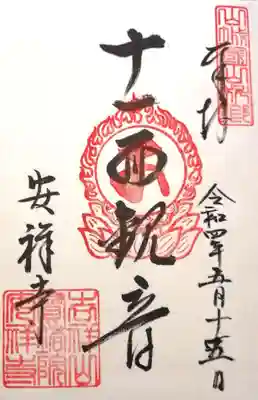 奉拝
令和四年五月十五日
十一面観音
安祥寺
吉祥山
寳塔院
安祥寺